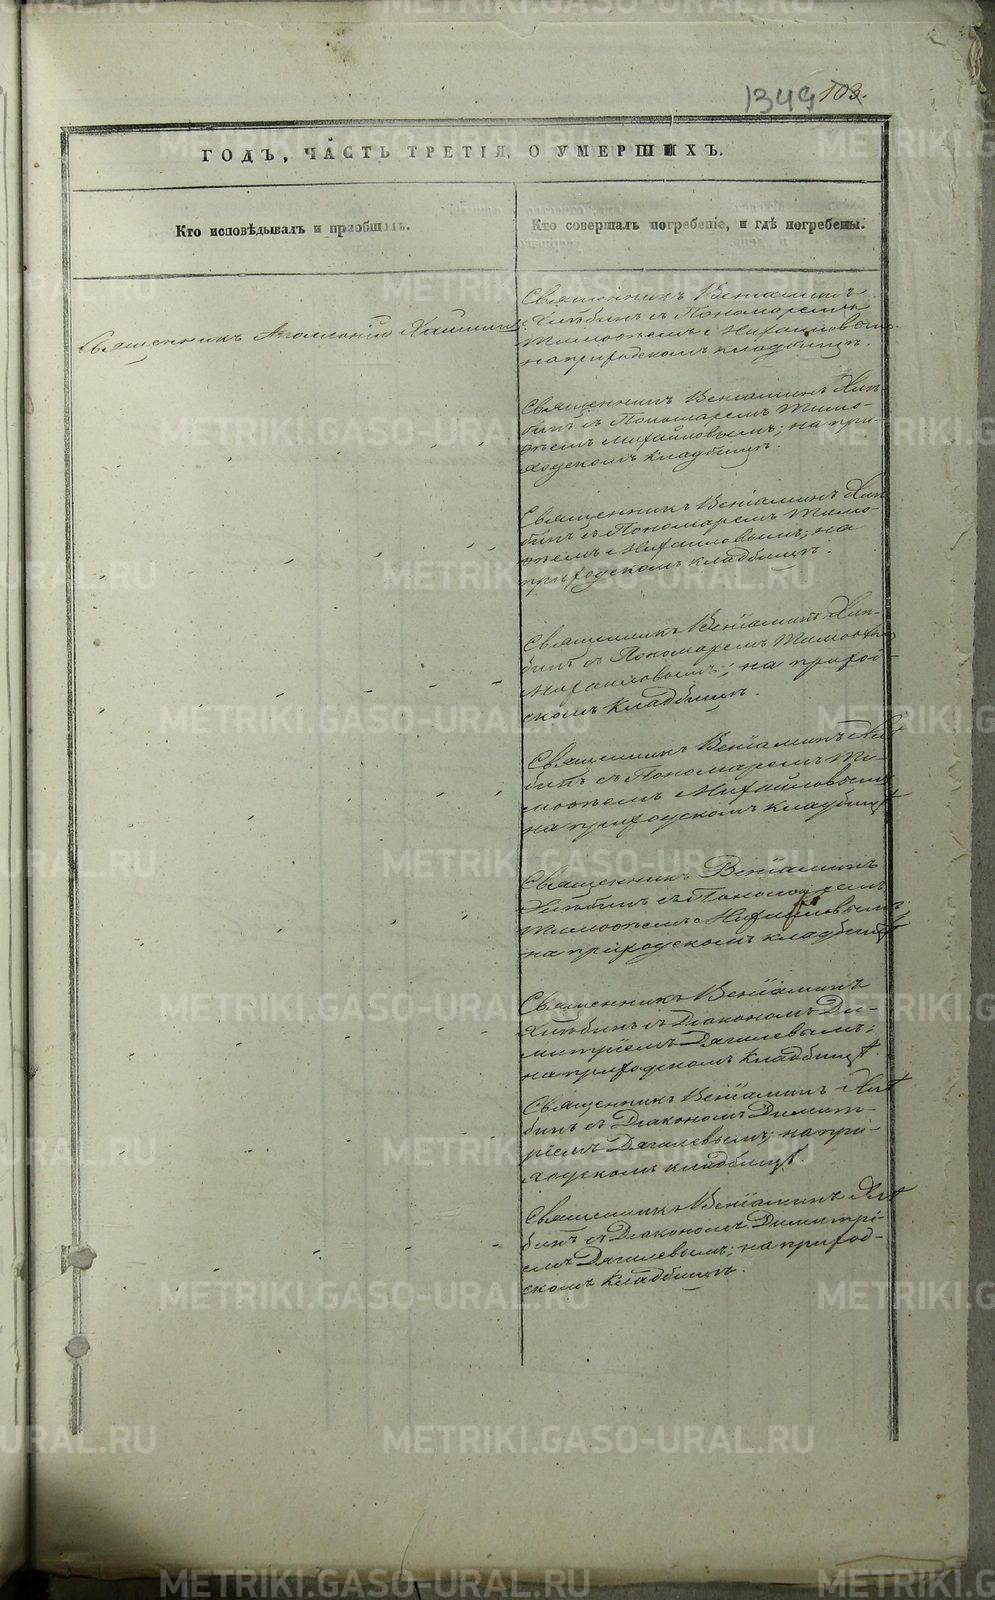 METRIKI.GASO-URAL.RU
1349 103.
ГОДЪ, ЧАСТЬ ТРЕТІЯ, О УМЕРШИХЪ.
Кто исповѣдывалъ и пріобщалъ.
Кто совершалъ погребеніе, и гдѣ погребены.
Священникъ
Священникъ Веніаминъ
Хлѣбинъ съ Пономаремъ
Тимоѳеемъ Михайловымъ
на приходскомъ кладбищѣ.
Священникъ Веніаминъ Хлѣ-
бинъ съ Пономаремъ Тимо-
ѳеемъ Михайловымъ; на при-
ходскомъ кладбищѣ.
Священникъ Веніаминъ Хлѣ
бинъ съ Пономаремъ Тимо-
ѳеемъ Михайловымъ; на
приходскомъ кладбищѣ.
Священникъ Веніаминъ Хлѣ-
бинъ съ Пономаремъ Тимоѳеемъ
Михайловымъ; на приход-
скомъ кладбищѣ.
Священникъ Веніаминъ Хлѣ
бинъ съ Пономаремъ Ти-
моѳеемъ Михайловымъ
на приходскомъ кладбищѣ
Священникъ Веніаминъ
Хлѣбинъ съ Пономаремъ
Тимоѳеемъ Михайловымъ;
на приходскомъ кладбищѣ
Священникъ Веніаминъ
Хлѣбинъ съ Діакономъ Ди-
митріемъ Дягилевымъ;
на приходскомъ кладбищѣ.
Священникъ Веніаминъ Хлѣ
бинъ съ Діакономъ Димит-
ріемъ Дягилевымъ; на при-
ходскомъ кладбищѣ.
Священникъ Веніаминъ Хлѣ
бинъ съ Діакономъ Димитрі-
емъ Дягилевымъ; на приход-
скомъ кладбищѣ.